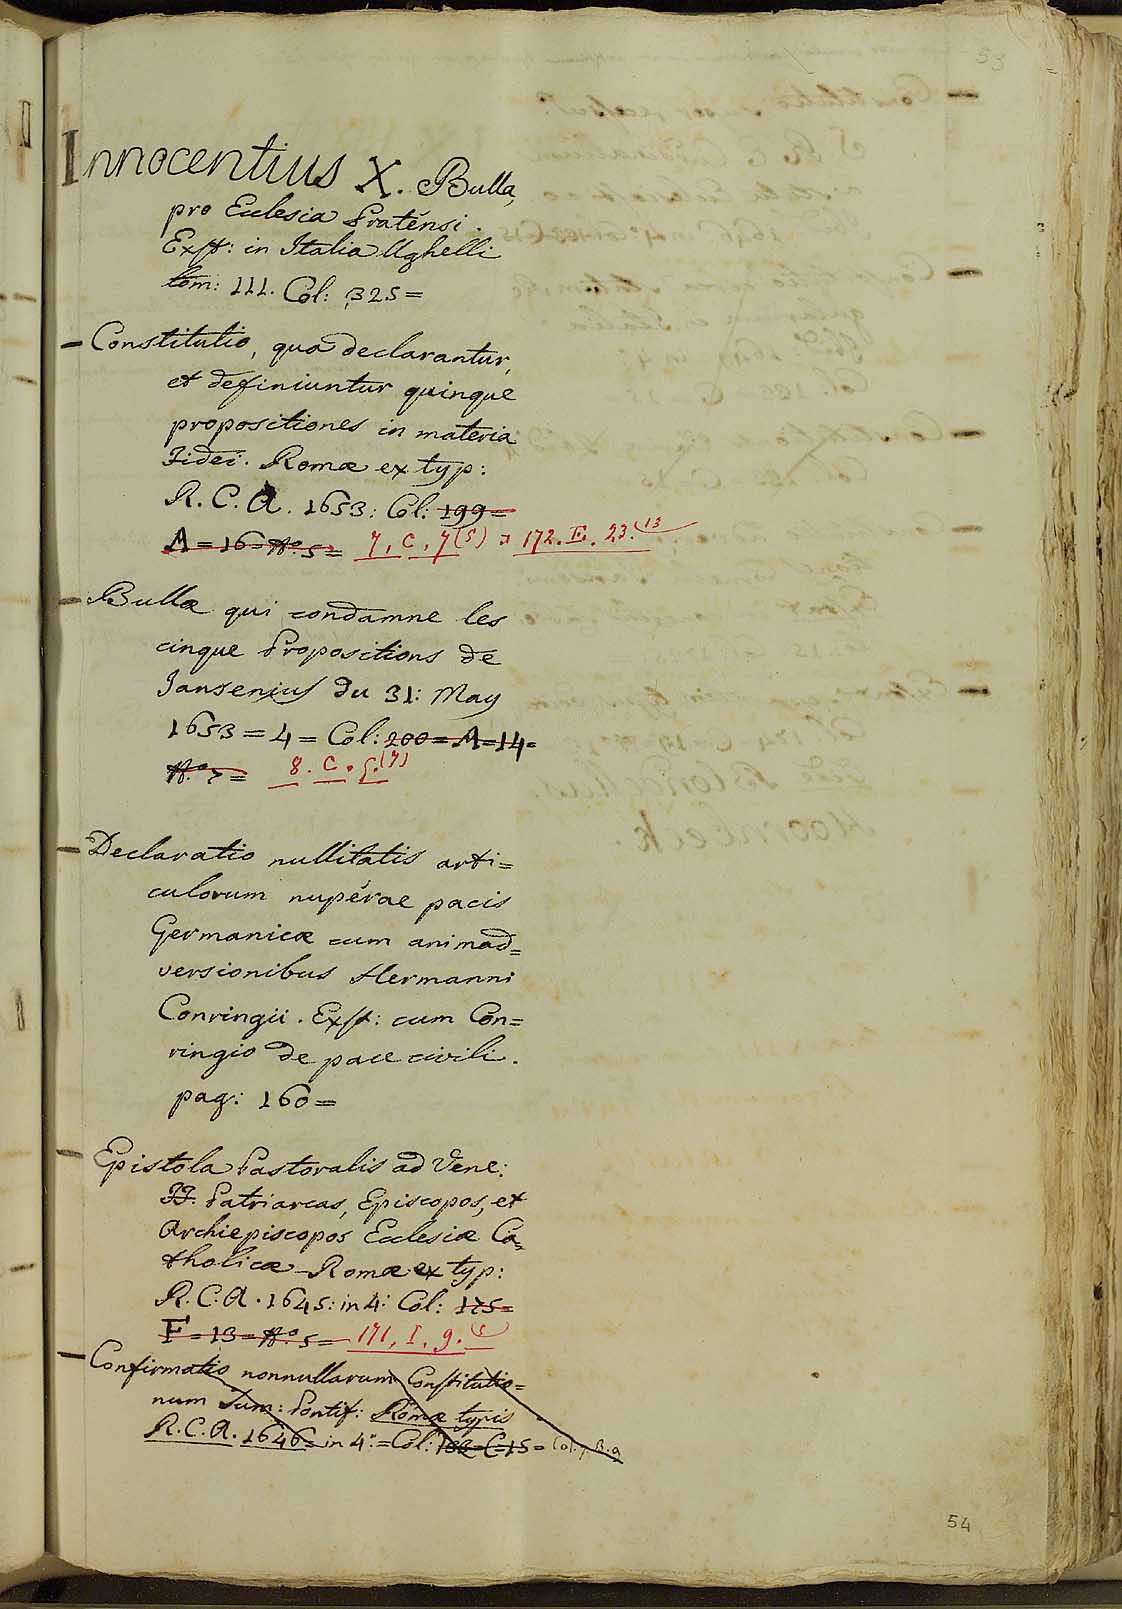 53
Innocentius X. Bulla,
pro Ecclesia Pratensi.
Exst: in Italia Ughelli
tom: 111. Col: 325=
Constitutio, qua declarantur,
et definiuntur quinque
propositiones in materia
Fidei. Romæ ex typ:
R. C. A. 1653: Col: 199=
A=16=Nº.5= 7. C. 7(5) 172. E. 23.(13
Bulla qui condamne les
cinque Propositions de
Jansenius du 31: May
1653=4= Col: 200=A=14=
Nº.7= 8. C. 5.(7)
Declaratio nullitatis arti=
culorum nuperae pacis
Germanicæ cum animad=
versionibus Hermanni
Conringii. Exst: cum Con=
ringio de pace civili.
pag: 160=
Epistola Pastoralis ad Vene:
FF. Patriarcas, Episcopos, et
Archiepiscopos Ecclesiæ Ca=
tholicæ Romæ ex typ:
R. C. A. 1645: in 4: Col: 175=
F=13=Nº.5= 171. I. 9.(5)
Confirmatio nonnullarum Constitutio=
num Sum: Pontif: Romæ typis
R. C. A. 1646= in 4º.= Col: C=15=
54